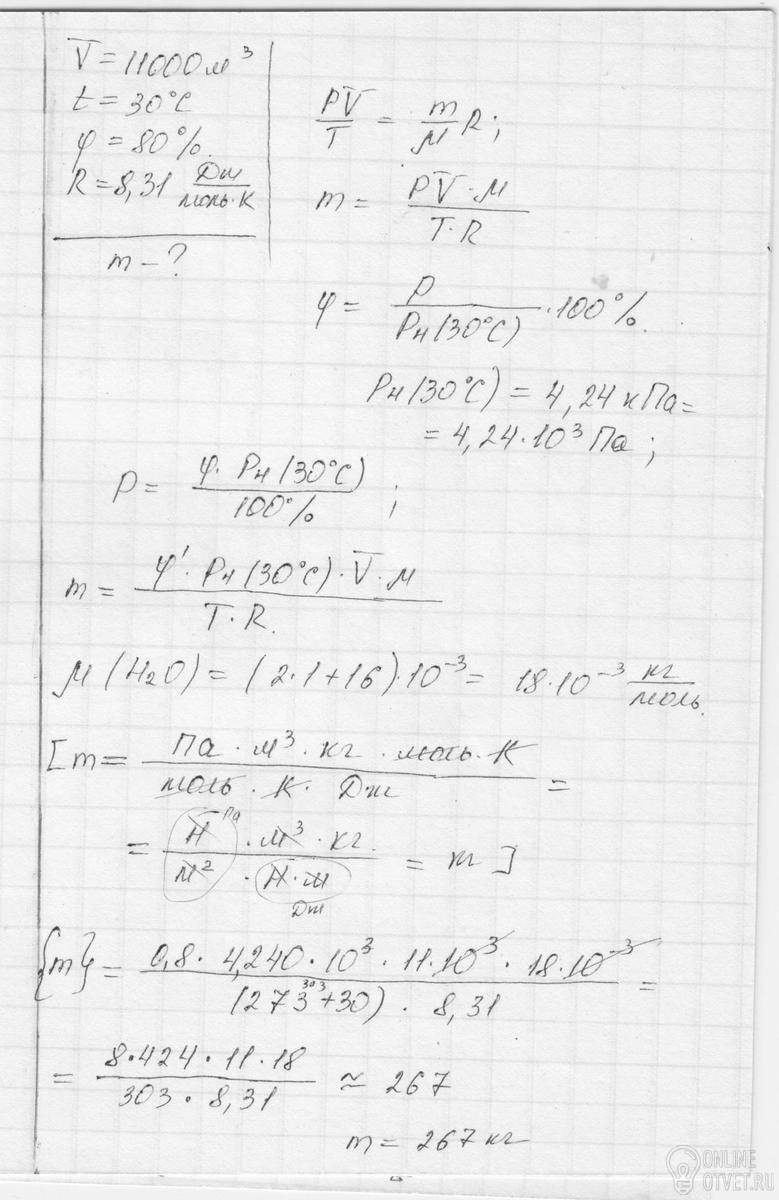 V = 11000 м³
t = 30°C
φ = 80%.
R = 8,31 Дж/моль·К
m - ?
PV/T = m/M R;
m = PV·M / T·R
φ = P / Pн(30°C) · 100%.
Pн(30°C) = 4,24 кПа =
= 4,24·10³ Па;
P = φ·Pн(30°C) / 100% ;
m = φ'·Pн(30°C)·V·M / T·R.
M(H₂O) = (2·1+16)·10⁻³ = 18·10⁻³ кг/моль.
[m = Па·м³·кг·моль·К / моль·К·Дж =
= Н Па·м³·кг. / м²·Н·м Дж = кг]
{m} = 0,8·4,240·10³·11·10³·18·10⁻³ / (273+30) 303 · 8,31 =
= 8·424·11·18 / 303·8,31 ≈ 267
m = 267 кг
ONLINE
OTVET.RU